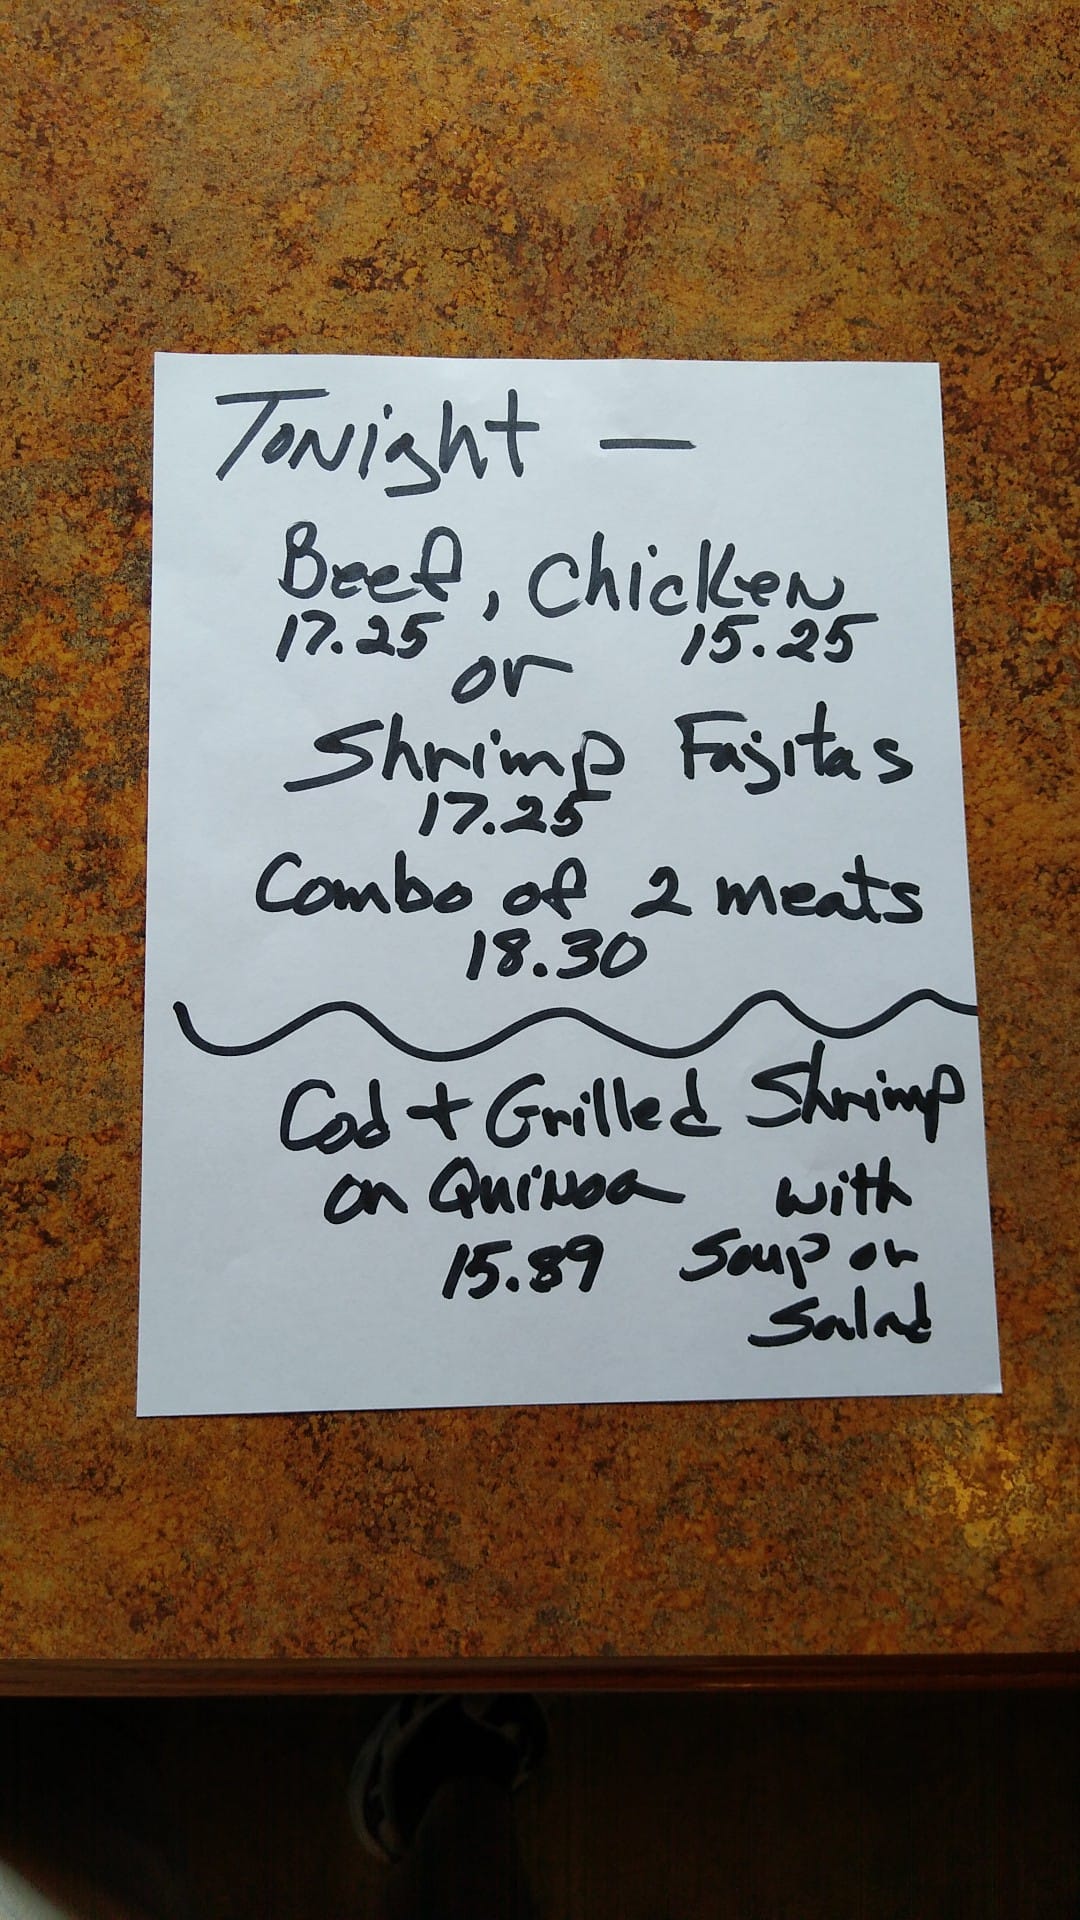 Tonight —
Beef, Chicken
17.25 15.25
or
Shrimp Fajitas
17.25
Combo of 2 meats
18.30
Cod + Grilled Shrimp
on Quinoa with
15.89 Soup or
Salad